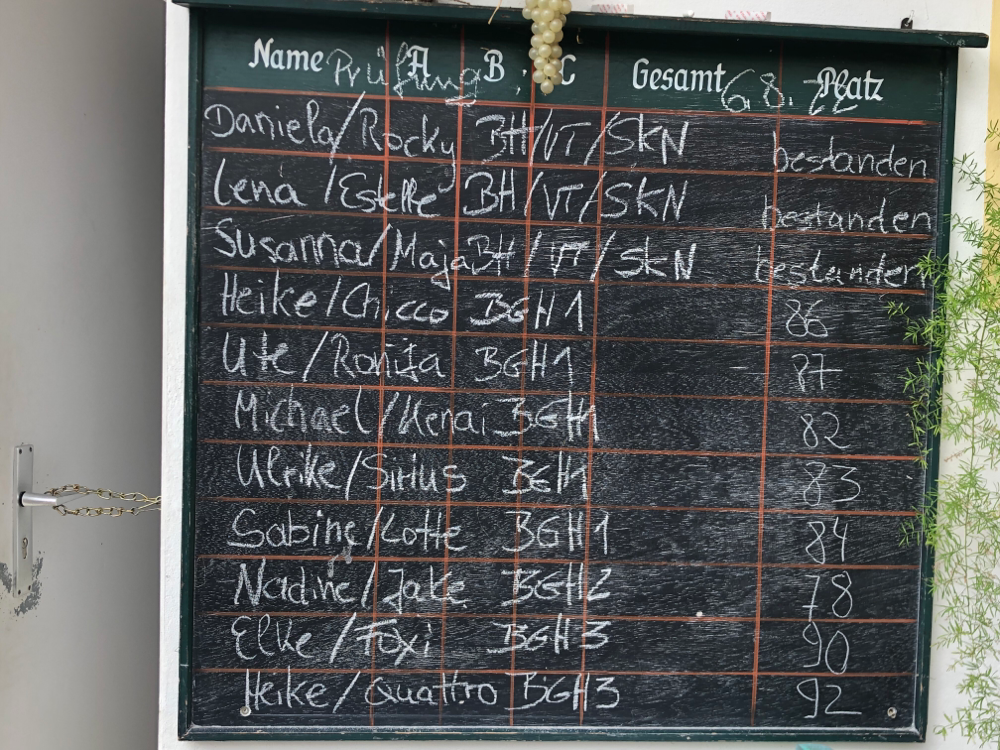 Name A B C Gesamt Platz
Prüfung 6.8.22
Daniela/Rocky BH/VT/SKN bestanden
Lena /Estelle BH/VT/SKN bestanden
Susanna/Maja BH/VT/SKN bestanden
Heike/Chicco BGH1 86
Ute/Ronita BGH1 87
Michael/Kenai BGH1 82
Ulrike/Sirius BGH1 83
Sabine/Lotte BGH1 84
Nadine/Jake BGH2 78
Elke/Foxi BGH3 90
Heike/Quattro BGH3 92